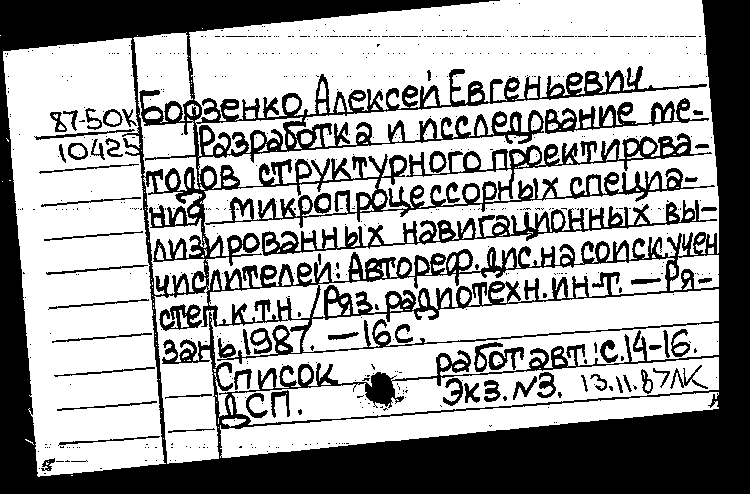 Борзенко, Алексей Евгеньевич.
87-5ОК
10425
Разработка и исследование ме-
тодов структурного проектирова-
ния микропроцессорных специа-
лизированных навигационных вы-
числителей: Автореф. дис. на соиск. учен
степ. к.т.н. / Ряз. радиотехн. ин-т. — Ря-
зань, 1987. — 16 с.
Список работ авт.: с. 14-16.
ДСП. Экз. №3. 13.11.87 ЛК